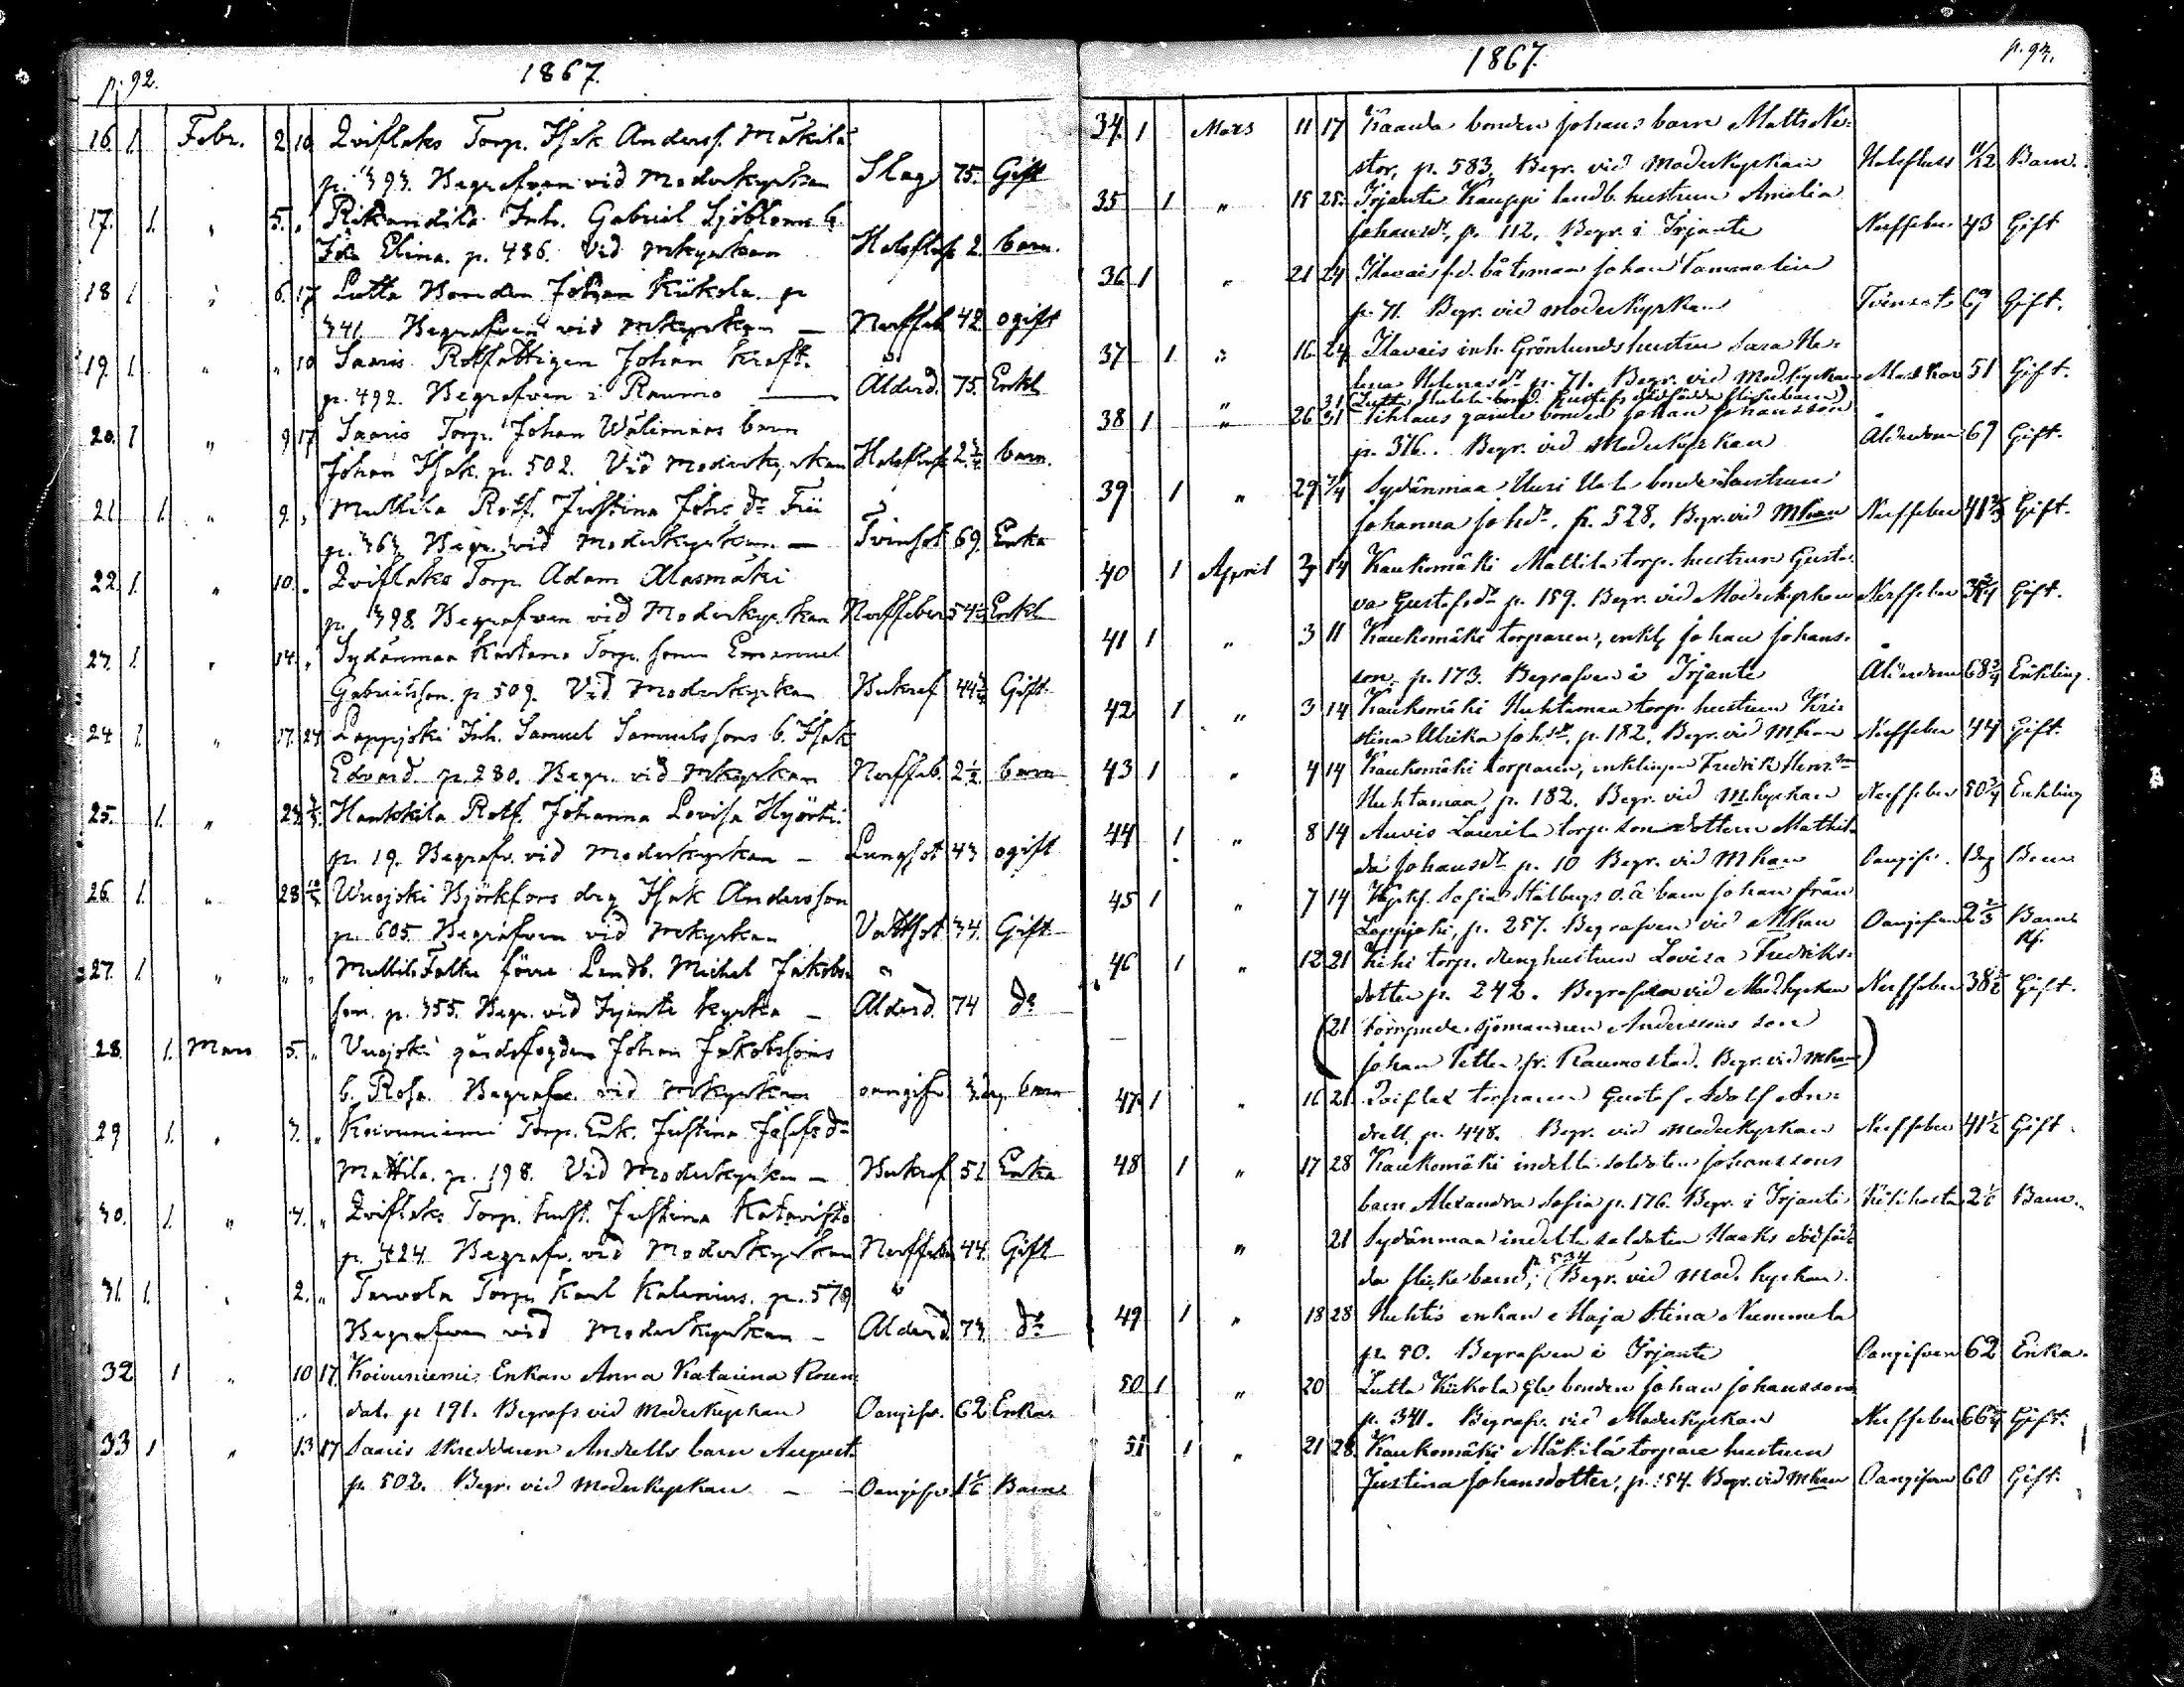 p. 92.
1867.
16. 1. Febr. 2 10 Qviflaks Torp. Isak Anderss. Mäkilä
p. 393. Begrafven vid Moderkyrkan Slag 75. Gift
17. 1. " 5. " Rikandilä Inh. Gabriel Sjöbloms b.
Ida Elina. p. 486. Vid Mkyrkan Halsfluss 2. barn.
18 1. " 6. 17 Lutta Bonden Johan Kiikola. p
341. Begrafven vid Mkyrkan — Nerffeb. 42 ogift
19. 1. " " 10 Saaris Rotfattigen Johan Kraft.
p. 492. Begrafven i Raumo — Ålderd. 75. Enkl
20. 1 " 9 17 Saaris Torp. Johan Wälimaas barn
Johan Isak. p. 502. Vid Moderkyrkan Halsfluss 2¾ barn.
21. 1. " 9. " Mullila Rotf. Justina Johsdr Fii
p. 363 Begr. vid Moderkyrkan — Tvinsot 69. Enka
22. 1. " 10. " Qviflaks Torp. Adam Alasmäki
p. 398. Begrafven vid Moderkyrkan Nerffeber 54½ Enkl
23. 1. " 14. " Sydänmaa Kartano Torp. sonen Emanuel
Gabrielsson. p. 509. Vid Moderkyrkan Bukref 44¾ Gift
24 1. " 17. 24 Lappjoki Inh. Samuel Samuelssons b. Isak
Edvard p. 280. Begr. vid Mkyrkan Nerffeb. 2½. barn
25. 1. " 23. 3/3. Hankkila Rotf. Johanna Lovisa Hyörti
p. 19. Begrafv. vid Moderkyrkan — Lungsot 43 ogift
26. 1. " 28 10/3 Wuojoki Björkfors drg Isak Andersson
p. 605 Begrafven vid Mkyrkan Vattsot 34. Gift
27. 1. " " " Mullila Faltu förre Landb. Michel Jakobs-
son. p. 355. Begr. vid Irjante kyrka — Ålderd. 74 do
28. 1. Mars 5. " Vuojoki gårdsfogden Johan Jakobssons
b. Rosa. Begrafv. vid Mkyrkan oangifv. 3 dag. barn
29 1. " 3. " Koivuniemi Torp. Enk. Justina Josefsdr
Mattila. p. 198. Vid Moderkyrkan — Bukref 51 Enka
30. 1. " 4. " Qviflaks Torp. hust. Justina Katavisto
p. 424. Begrafv. vid Moderkyrkan Nerffeber 44. Gift
31. 1. " 2. " Tarvola Torp. Karl Kalenius. p. 579
Begrafven vid Moderkyrkan — Ålderd 73. do
32 1 " 10 17. Koivuniemi Enkan Anna Katarina Rosen-
dal. p 191. Begrafs vid Moderkyrkan Oangifv. 62 Enka
33 1 " 13 17 Saaris skreddaren Andells barn August
p. 502. Begr. vid Moderkyrkan — Oangifv. 1 1/6 Barn
1867.
p. 93.
34. 1 Mars 11 17 Kaanda bonden Johans barn Matts Ne-
stor, p. 583. Begr. vid Moderkyrkan Halsfluss 11/12 Barn.
35 1 " 15 25. Irjante Kauppi landb. hustrun Amalia
Johansdr, p. 112. Begr. i Irjante Nerffeber 43 Gift
36 1 " 21 24 Ilavais f.d. båtsman Johan Tammelin
p. 71. Begr. vid Moderkyrkan Tvinsot 69 Gift.
37 1 " 16 24 Ilavais inh. Grönlunds hustru Sara He-
lena Helenasdr p. 71. Begr. vid Mod.kyrkan 51 Gift.
" 31 (Lutta bond. Gustafs dödfödda flickebarn)
38 1 " 26 31 Tiklaus gamle bonden Johan Johansson
p. 316. Begr. vid Moderkyrkan Ålderdom 69 Gift.
39 1 " 29 7/4 Sydänmaa Uusi bonde hustrun
Johanna Johdr. p. 528. Begr. vid Mkan Nerffeber 41⅔ Gift.
40 1 April 3 14 Kaukomäki Mattila torp. hustrun Gusta-
va Gustafsdr p. 159. Begr. vid Moderkyrkan Nerffeber Gift.
41 1 " 3 11 Kaukomäki torparen, enkl, Johan Johans-
son, p. 173. Begrafven i Irjante Ålderdom 68¾ Enkling.
42 1 " 3 14 Kaukomäki Huhtamaa torp. hustrun Kri-
stina Ulrika Johsdr, p. 182. Begr. vid Mkan Nerffeber 44 Gift.
43 1 " 4 14 Kaukomäki torparen, enklingen Fredrik
Huhtamaa, p. 182. Begr. vid Mkyrkan Nerffeber 50¾ Enkling
44 1 " 8 14 Auvis Laurila torp. son dottern Mathil-
da Johansdr p. 10 Begr. vid Mkan Oangifv. 1 dag Barn
45 1 " 7 14 Sofia Stålbergs o.ä barn Johan från
Lappjoki, p. 257. Begrafven vid Mkan Oangifven 2⅔ Barn
46 1 " 12 21 Kihi torp. dreng hustrun Lovisa Fredriks-
dotter p. 242. Begrafven vid Modkyrkan Nerffeber 38½ Gift.
(21 Förrymde sjömannen Anderssons son
Johan Petter fr. Raumo stad. Begr. vid Mkan)
47 1 " 16 21 Qviflax torparen Gustaf Adolf An-
drell p. 448. Begr. vid Moderkyrkan Nerffeber 41½ Gift.
48 1 " 17 28 Kaukomäki indelte soldaten Johanssons
barn Alexandra Sofia p. 176. Begr. i Irjante Kikhosta 2 1/6 Barn.
" 21 Sydänmaa indelte soldaten Haaks dödföd-
da flickebarn, p 534 (Begr. vid Mod. kyrkan.
49 1 " 18 28 Huhtis enkan Maja Stina Nummela
p. 80. Begrafven i Irjante Oangifven 62 Enka.
50 1 " 20 Lutta Kiikola gle bonden Johan Johansson
p. 341. Begrafv. vid Moderkyrkan Nerffeber 66¾ Gift.
51 1 " 21 28. Kaukomäki Mäkilä torpare hustrun
Justina Johansdotter, p. 154. Begr. vid Mkan Oangifven 60 Gift.